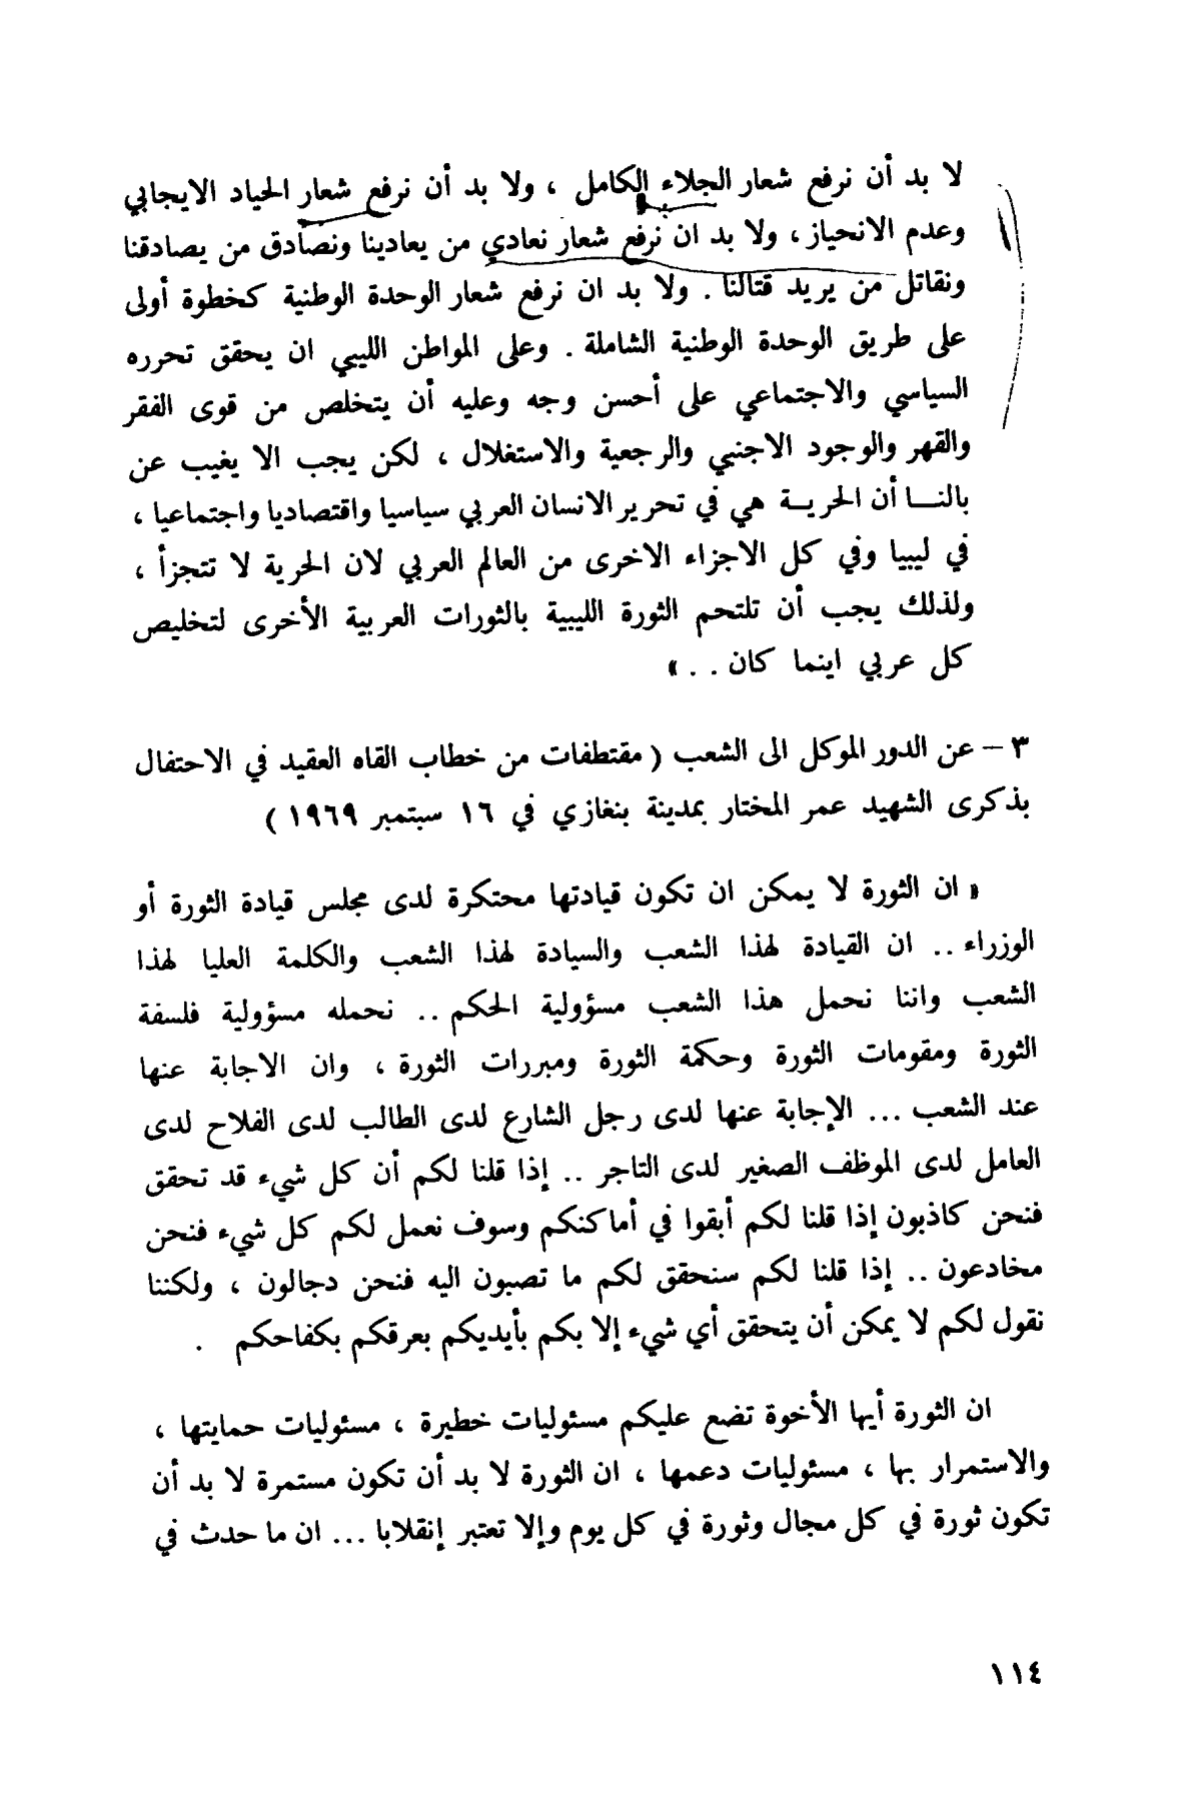 لا بد أن نرفع شعار الجلاء الكامل ، ولا بد أن نرفع شعار الحياد الايجابي
وعدم الانحياز ، ولا بد ان نرفع شعار نعادي من يعادينا ونصادق من يصادقنا
ونقاتل من يريد قتالنا . ولا بد ان نرفع شعار الوحدة الوطنية كخطوة أولى
على طريق الوحدة الوطنية الشاملة . وعلى المواطن الليبي ان يحقق تحرره
السياسي والاجتماعي على أحسن وجه وعليه أن يتخلص من قوى الفقر
والقهر والوجود الاجنبي والرجعية والاستغلال ، لكن يجب الا يغيب عن
بالنـــا أن الحريـــة هي في تحرير الانسان العربي سياسيا واقتصاديا واجتماعيا ،
في ليبيا وفي كل الاجزاء الاخرى من العالم العربي لان الحرية لا تتجزأ ،
ولذلك يجب أن تلتحم الثورة الليبية بالثورات العربية الأخرى لتخليص
كل عربي اينما كان . . »
٣ – عن الدور الموكل الى الشعب ( مقتطفات من خطاب القاه العقيد في الاحتفال
بذكرى الشهيد عمر المختار بمدينة بنغازي في ١٦ سبتمبر ١٩٦٩ )
« ان الثورة لا يمكن ان تكون قيادتها محتكرة لدى مجلس قيادة الثورة أو
الوزراء .. ان القيادة لهذا الشعب والسيادة لهذا الشعب والكلمة العليا لهذا
الشعب واننا نحمل هذا الشعب مسؤولية الحكم .. نحمله مسؤولية فلسفة
الثورة ومقومات الثورة وحكمة الثورة ومبررات الثورة ، وان الاجابة عنها
عند الشعب ... الإجابة عنها لدى رجل الشارع لدى الطالب لدى الفلاح لدى
العامل لدى الموظف الصغير لدى التاجر .. إذا قلنا لكم أن كل شيء قد تحقق
فنحن كاذبون إذا قلنا لكم أبقوا في أماكنكم وسوف نعمل لكم كل شيء فنحن
مخادعون .. إذا قلنا لكم سنحقق لكم ما تصبون اليه فنحن دجالون ، ولكننا
نقول لكم لا يمكن أن يتحقق أي شيء إلا بكم بأيديكم بعرقكم بكفاحكم .
ان الثورة أيها الأخوة تضع عليكم مسئوليات خطيرة ، مسئوليات حمايتها ،
والاستمرار بها ، مسئوليات دعمها ، ان الثورة لا بد أن تكون مستمرة لا بد أن
تكون ثورة في كل مجال وثورة في كل يوم وإلا تعتبر إنقلابا ... ان ما حدث في
١١٤